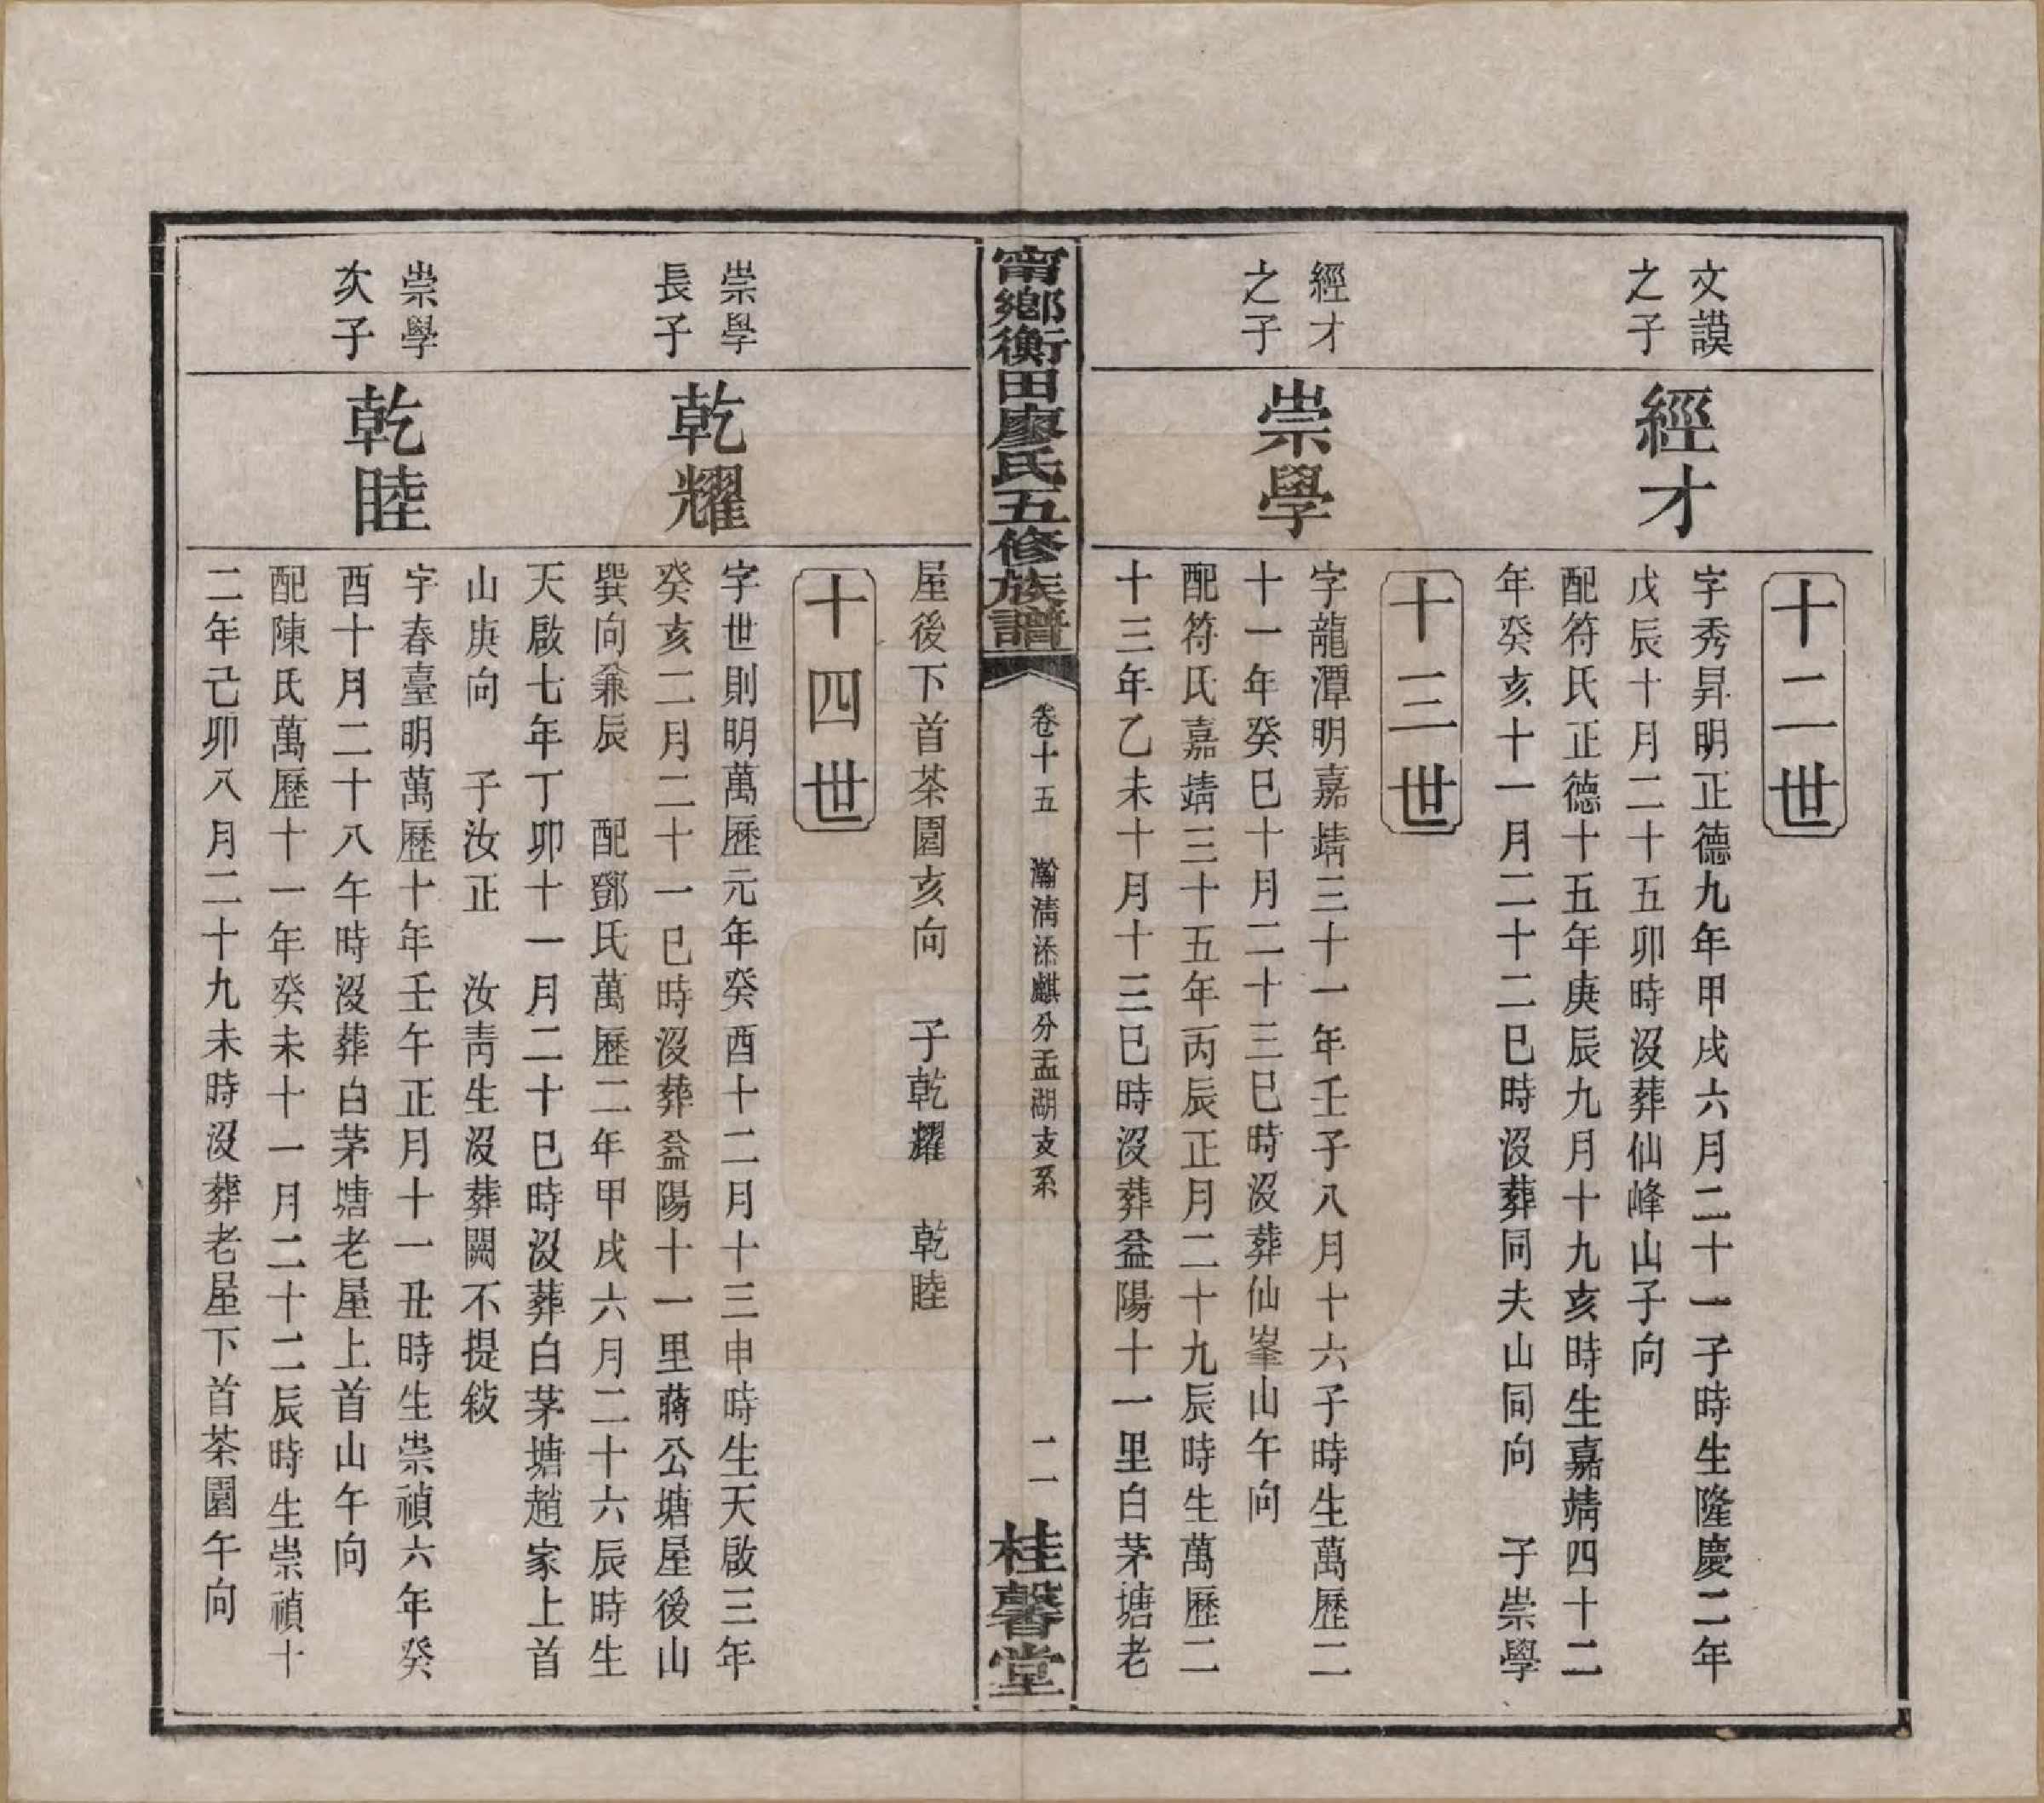 十二世
文謨
之子
經才
字秀昇明正德九年甲戌六月二十一子時生隆慶二年
戊辰十月二十五卯時沒葬仙峰山子向
配符氏正德十五年庚辰九月十九亥時生嘉靖四十二
年癸亥十一月二十二巳時沒葬同夫山同向　子崇學
十三世
經才
之子
崇學
字龍潭明嘉靖三十一年壬子八月十六子時生萬歷二
十一年癸巳十月二十三巳時沒葬仙峯山午向
配符氏嘉靖三十五年丙辰正月二十九辰時生萬歷二
十三年乙未十月十三巳時沒葬益陽十一里白茅塘老
甯鄉衡田廖氏五修族譜
卷十五　瀚淸添麒分孟湖支系
二
桂馨堂
屋後下首茶園亥向　子乾耀　乾睦
十四世
崇學
長子
乾耀
字世則明萬歷元年癸酉十二月十三申時生天啟三年
癸亥二月二十一巳時沒葬益陽十一里蔣公塘屋後山
巽向兼辰　配鄧氏萬歷二年甲戌六月二十六辰時生
天啟七年丁卯十一月二十巳時沒葬白茅塘趙家上首
山庚向　子汝正　汝靑生沒葬闕不提敍
崇學
次子
乾睦
字春臺明萬歷十年壬午正月十一丑時生崇禎六年癸
酉十月二十八午時沒葬白茅塘老屋上首山午向
配陳氏萬歷十一年癸未十一月二十二辰時生崇禎十
二年己卯八月二十九未時沒葬老屋下首茶園午向